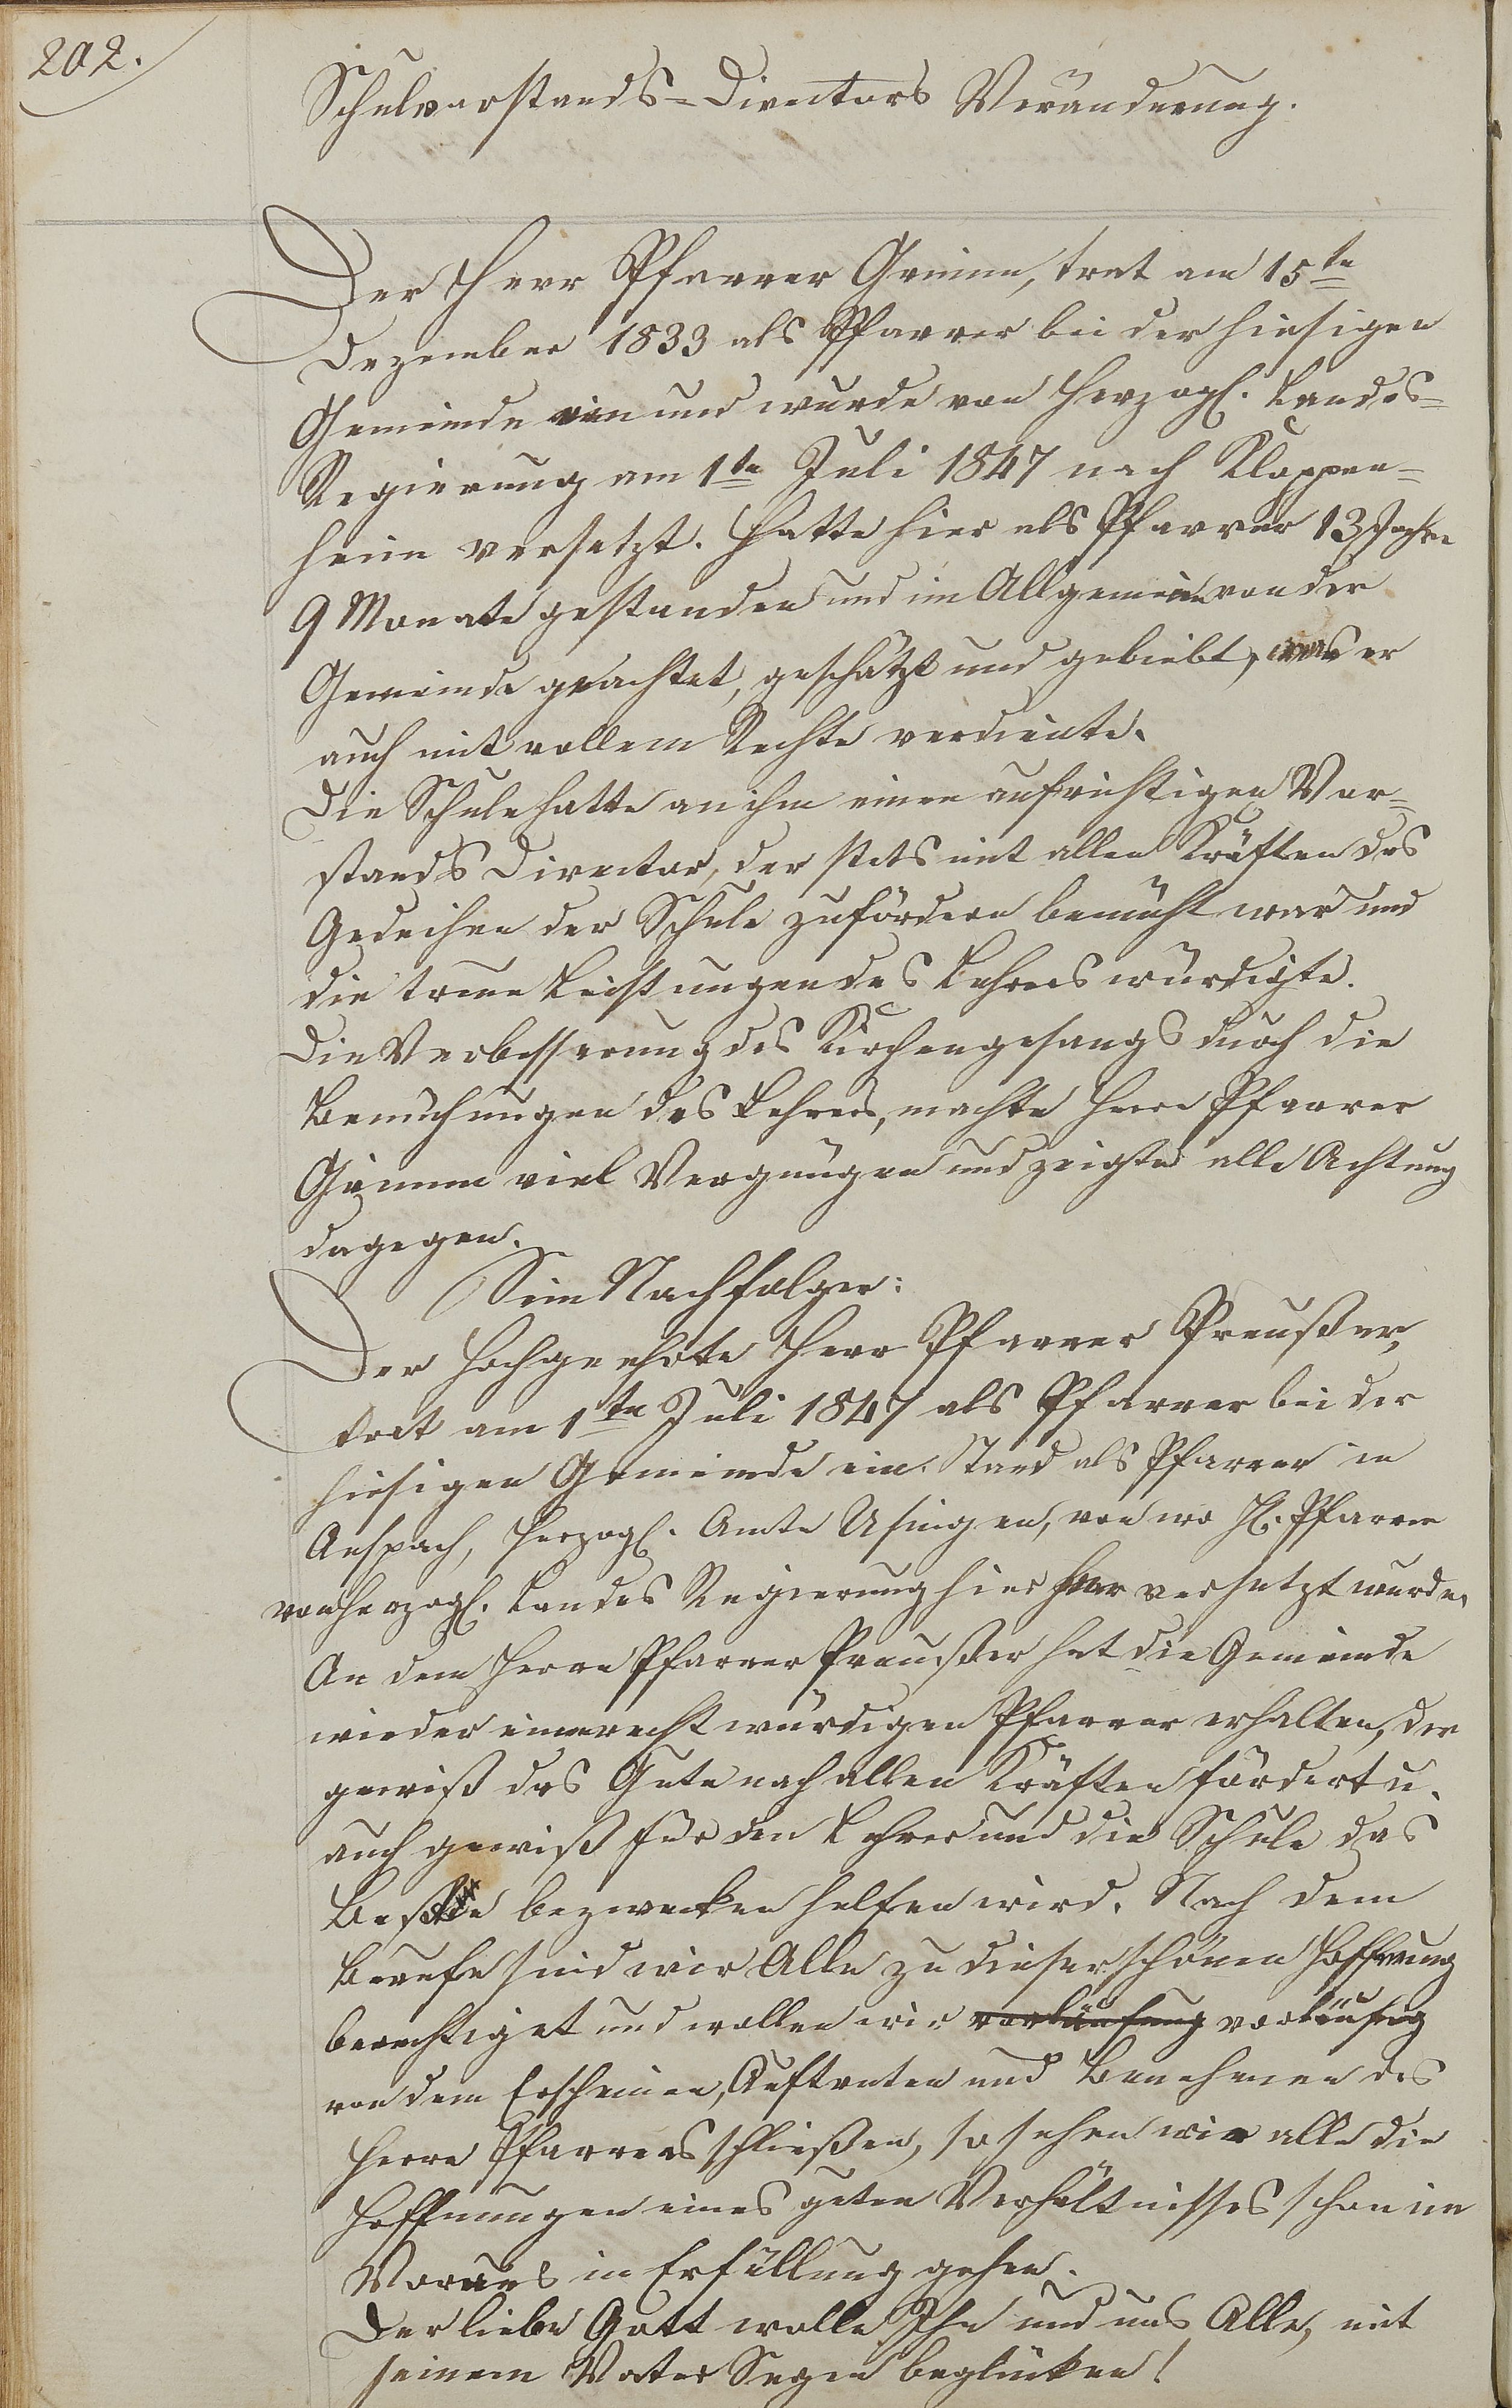 202.
Schulvorstands=Directors Veränderung.
Der Herr Pfarrer Grimm, trat am 15te
Dezember 1833 als Pfarrer bei der hiesigen
Gemeinde ein und wurde von Herzogl. Landes=
Regierung am 1te Juli 1847 nach Kloppen=
heim versetzt. Hatte hier als Pfarrer 13 Jahre
9 Monate gestanden und im Allgemein von der
Gemeinde geachtet, geschätzt und geliebt, was er
auch mit vollem Rechte verdiente.
Die Schule hatte an ihm einen aufrichtigen Vor=
stands Director, der stets mit allen Kräften das
Gedeihen der Schule zufördern bemüht war und
die treue Leistungen des Lehrers würdigte.
Die Verbesserung des Kirchengesangs durch die
Bemühungen des Lehrers, machte Herrn Pfarrer
Grimm viel Vergnügen und zeigte alle Achtung
dagegen.
Sein Nachfolger:
Der hochgeehrte Herr Pfarrer Preußer,
trat am 1te Juli 1847 als Pfarrer bei der
hiesigen Gemeinde ein. Stand als Pfarrer in
Anspach, Herzogl. Amte Usingen, von wo H. Pfarrer
von Herzogl. Landes Regierung hier her versetzt wurde.
An dem Herrn Pfarrer Preußer hat die Gemeinde
wieder einen recht würdigen Pfarrer erhalten, der
gewiß das Gute nach allen Kräften fördert u.
auch gewiß für den Lehrer und die Schule das
Beste bezwecken helfen wird. Nach dem
Berufe sind wir Alle zu dieser schönen Hoffnung
berechtiget und wollen wir vorläufig
von dem Erscheinen, Auftreten und Benehmen des
Herrn Pfarrers schließen, so sehen wir alle die
Hoffnungen eines guten Verhältnisses schon im
Voraus in Erfüllung gehen.
Der liebe Gott wolle Ihn und uns Alle, mit
seinem Vater Segen beglücken!